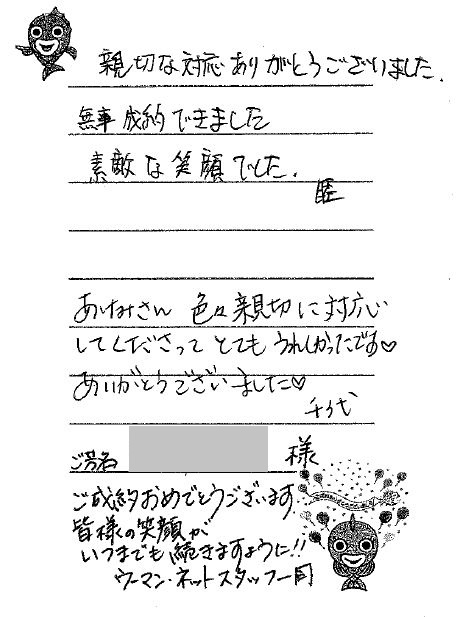 親切な対応ありがとうございました.
無事成約できました
素敵な笑顔でした.
あけみさん 色々親切に対応
してくださって とても うれしかったです♡
ありがとうございました♡
千代
ご芳名 様
ご成約おめでとうございます
皆様の笑顔が
いつまでも続きますように!!
ウーマン・ネットスタッフ一同